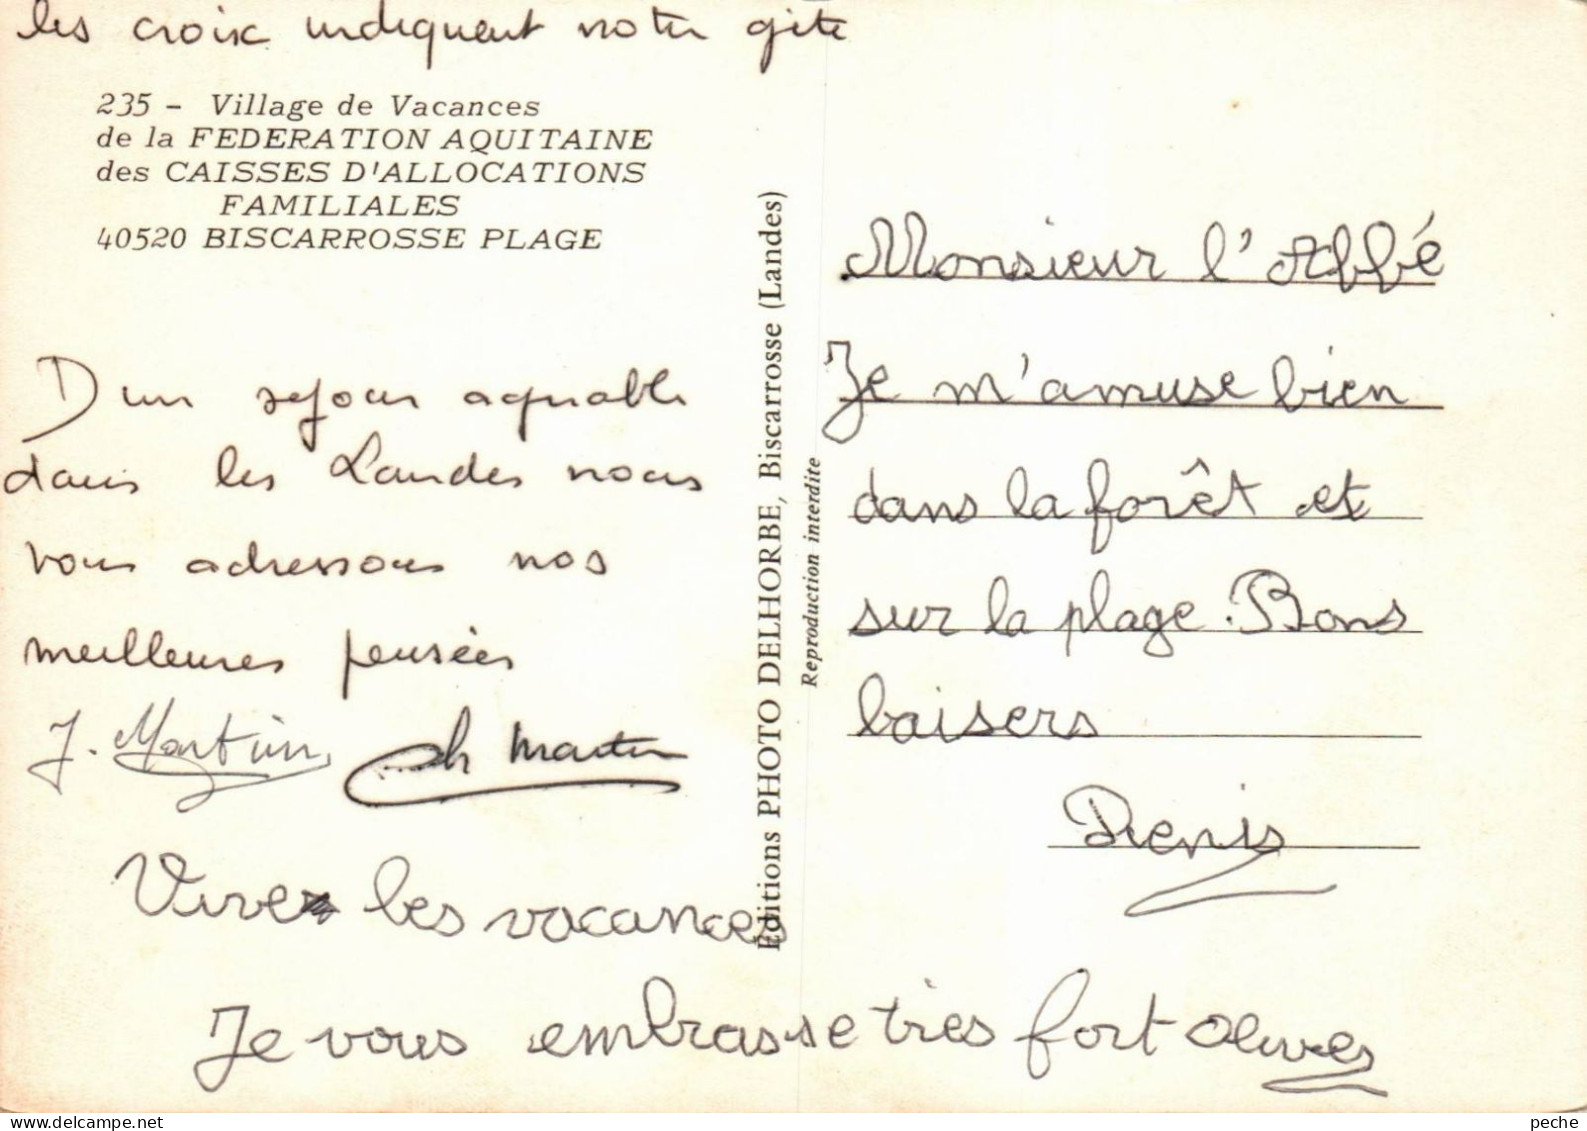 les croix indiquent notre gite
235 - Village de Vacances
de la FEDERATION AQUITAINE
des CAISSES D'ALLOCATIONS
FAMILIALES
40520 BISCARROSSE PLAGE
D'un sejour agreable
dans les Landes nous
vous adressons nos
meilleures pensées
J. Martin Ch Martin
Vive les vacances
Je vous embrasse très fort
Editions PHOTO DELHORBE, Biscarrosse (Landes)
Reproduction interdite
Monsieur l'Abbé
Je m'amuse bien
dans la forêt et
sur la plage. Bons
baisers
Denis
peche